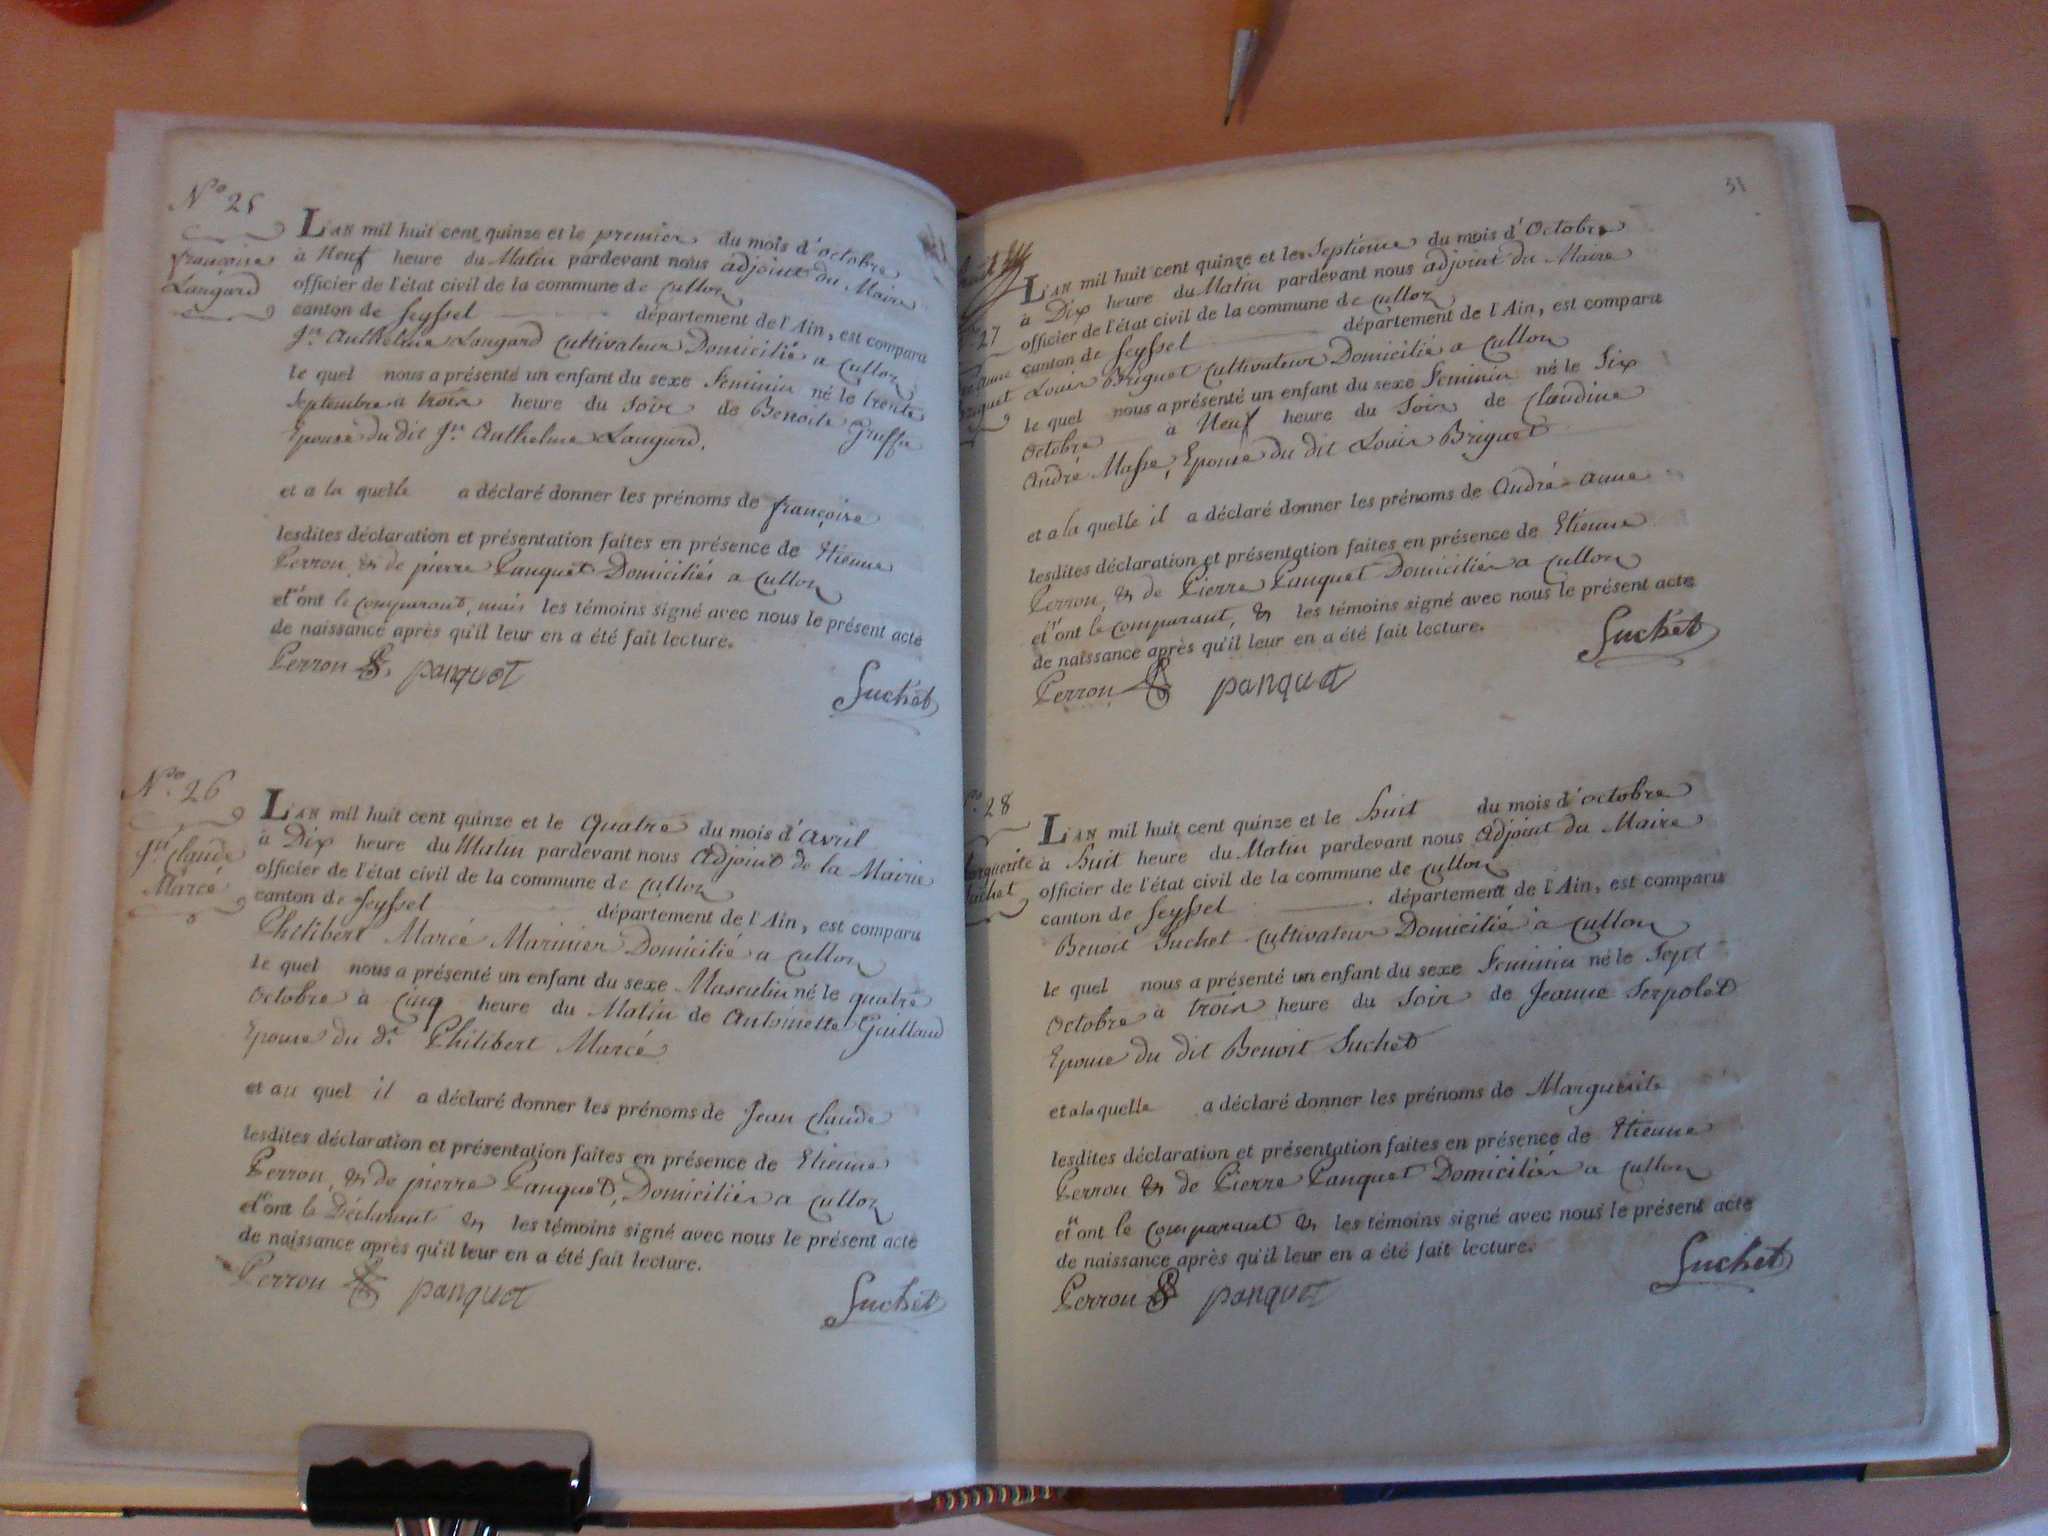 N.o 25
françoise
Langard
L'AN mil huit cent quinze et le premier du mois d'octobre
à Neuf heure du Matin pardevant nous adjoint du Maire
officier de l'état civil de la commune de Culloz
canton de Seyssel département de l'Ain, est comparu
Jn. Anthelme Langard Cultivateur Domicilié a Culloz
le quel nous a présenté un enfant du sexe Feminin né le trente
Septembre a trois heure du Soir de Benoite Gruffa
Epouse du dit Jn. Anthelme Langard.
et a la quelle a déclaré donner les prénoms de françoise
lesdites déclaration et présentation faites en présence de Etienne
Perron, & de pierre Panquet Domiciliés a Culloz
et ont le comparant, mais les témoins signé avec nous le présent acte
de naissance après qu'il leur en a été fait lecture.
Perron panquet
Suchet
N.o 26
Jn Claude
Marcé
L'AN mil huit cent quinze et le Quatre du mois d'avril
à Dix heure du Matin pardevant nous Adjoint de la Mairie
officier de l'état civil de la commune de Culloz
canton de Seyssel département de l'Ain, est comparu
Philibert Marcé Marinier Domicilié a Culloz
le quel nous a présenté un enfant du sexe Masculin né le quatre
Octobre à Cinq heure du Matin de Antoinette Guilland
Epouse du dt. Philibert Marcé
et au quel il a déclaré donner les prénoms de Jean Claude
lesdites déclaration et présentation faites en présence de Etienne
Perron, & de pierre Panquet, Domiciliés a Culloz
et ont le Déclarant & les témoins signé avec nous le présent acte
de naissance après qu'il leur en a été fait lecture.
Perron panquet
Suchet
31
27
L'AN mil huit cent quinze et le Septième du mois d'Octobre
à Dix heure du Matin pardevant nous adjoint du Maire
officier de l'état civil de la commune de Culloz
canton de Seyssel département de l'Ain, est comparu
Louis Briguet Cultivateur Domicilié a Culloz
le quel nous a présenté un enfant du sexe Feminin né le Six
Octobre à Neuf heure du Soir de Claudine
André Masse, Epouse du dit Louis Briguet
et a la quelle il a déclaré donner les prénoms de André-anne
lesdites déclaration et présentation faites en présence de Etienne
Perron, & de Pierre Panquet Domiciliés a Culloz
et ont le comparant, & les témoins signé avec nous le présent acte
de naissance après qu'il leur en a été fait lecture.
Suchet
Perron panquet
28
L'AN mil huit cent quinze et le huit du mois d'octobre
à huit heure du Matin pardevant nous Adjoint du Maire
officier de l'état civil de la commune de Culloz
canton de Seyssel département de l'Ain, est comparu
Benoit Suchet Cultivateur Domicilié à Culloz
le quel nous a présenté un enfant du sexe Feminin né le Sept
Octobre à trois heure du Soir de Jeanne Serpolet
Epouse du dit Benoit Suchet
et a la quelle a déclaré donner les prénoms de Marguerite
lesdites déclaration et présentation faites en présence de Etienne
Perron & de Pierre Panquet Domiciliés a Culloz
et ont le comparant & les témoins signé avec nous le présent acte
de naissance après qu'il leur en a été fait lecture.
Suchet
Perron panquet